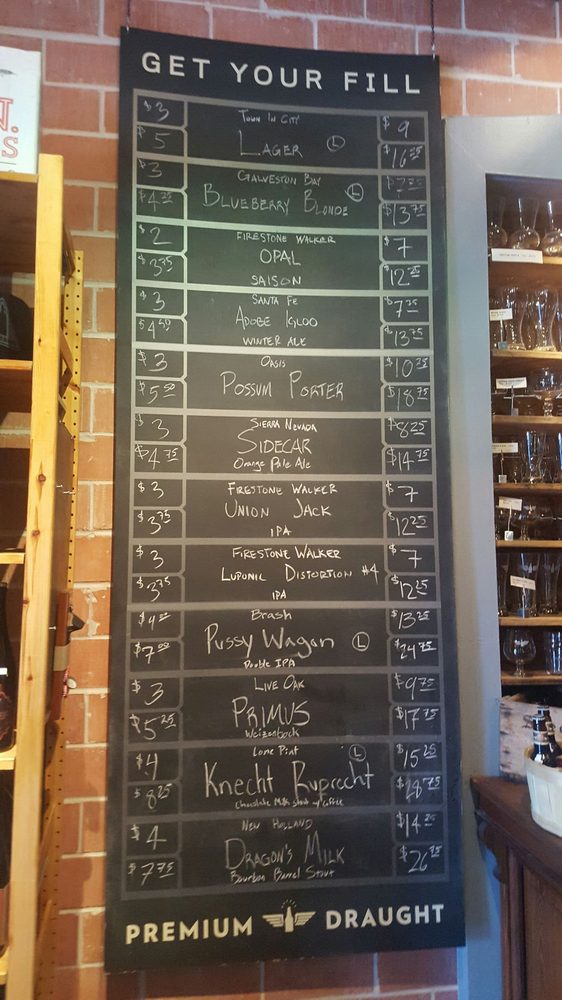 GET YOUR FILL
$3 Town In City $9
$5 LAGER L $16.25
$3 GALVESTON BAY
$4.25 BLUEBERRY BLONDE L $13.75
$2 FIRESTONE WALKER $7
$3.75 OPAL $12.25
SAISON
$3 SANTA FE $7.25
ADOBE IGLOO
$4.50 WINTER ALE $13.75
$3 OASIS $10.25
$5.50 POSSUM PORTER $18.75
$3 SIERRA NEVADA $8.25
$4.75 SIDECAR $14.75
Orange Pale Ale
$3 FIRESTONE WALKER $7
$3.75 UNION JACK $12.25
IPA
$3 FIRESTONE WALKER $7
$3.75 LUPONIC DISTORTION #4 $12.25
IPA
$4.00 Brash $13.25
$7.00 Pussy Wagon L $24.75
Double IPA
$3 LIVE OAK $9.75
$5.25 PRIMUS $17.75
Weizenbock
$4 Lone Pint L $15.25
$8.25 Knecht Ruprecht $28.75
Chocolate Milk Stout w/ Coffee
$4 NEW HOLLAND $14.25
$7.75 DRAGON'S MILK $26.75
Bourbon Barrel Stout
PREMIUM DRAUGHT